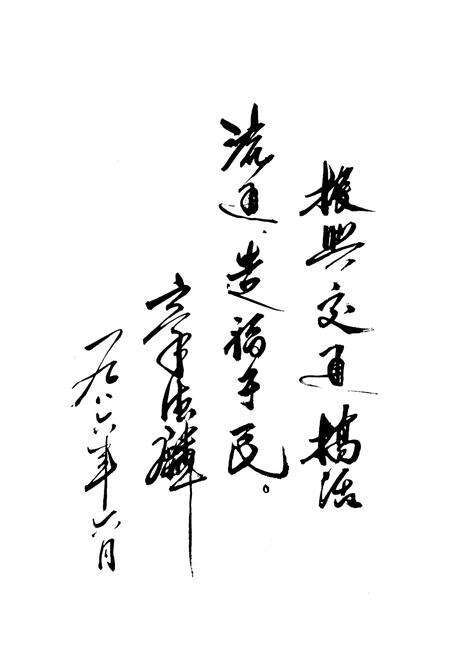 振興交通搞活
流通、造福于民。
一九八六年六月